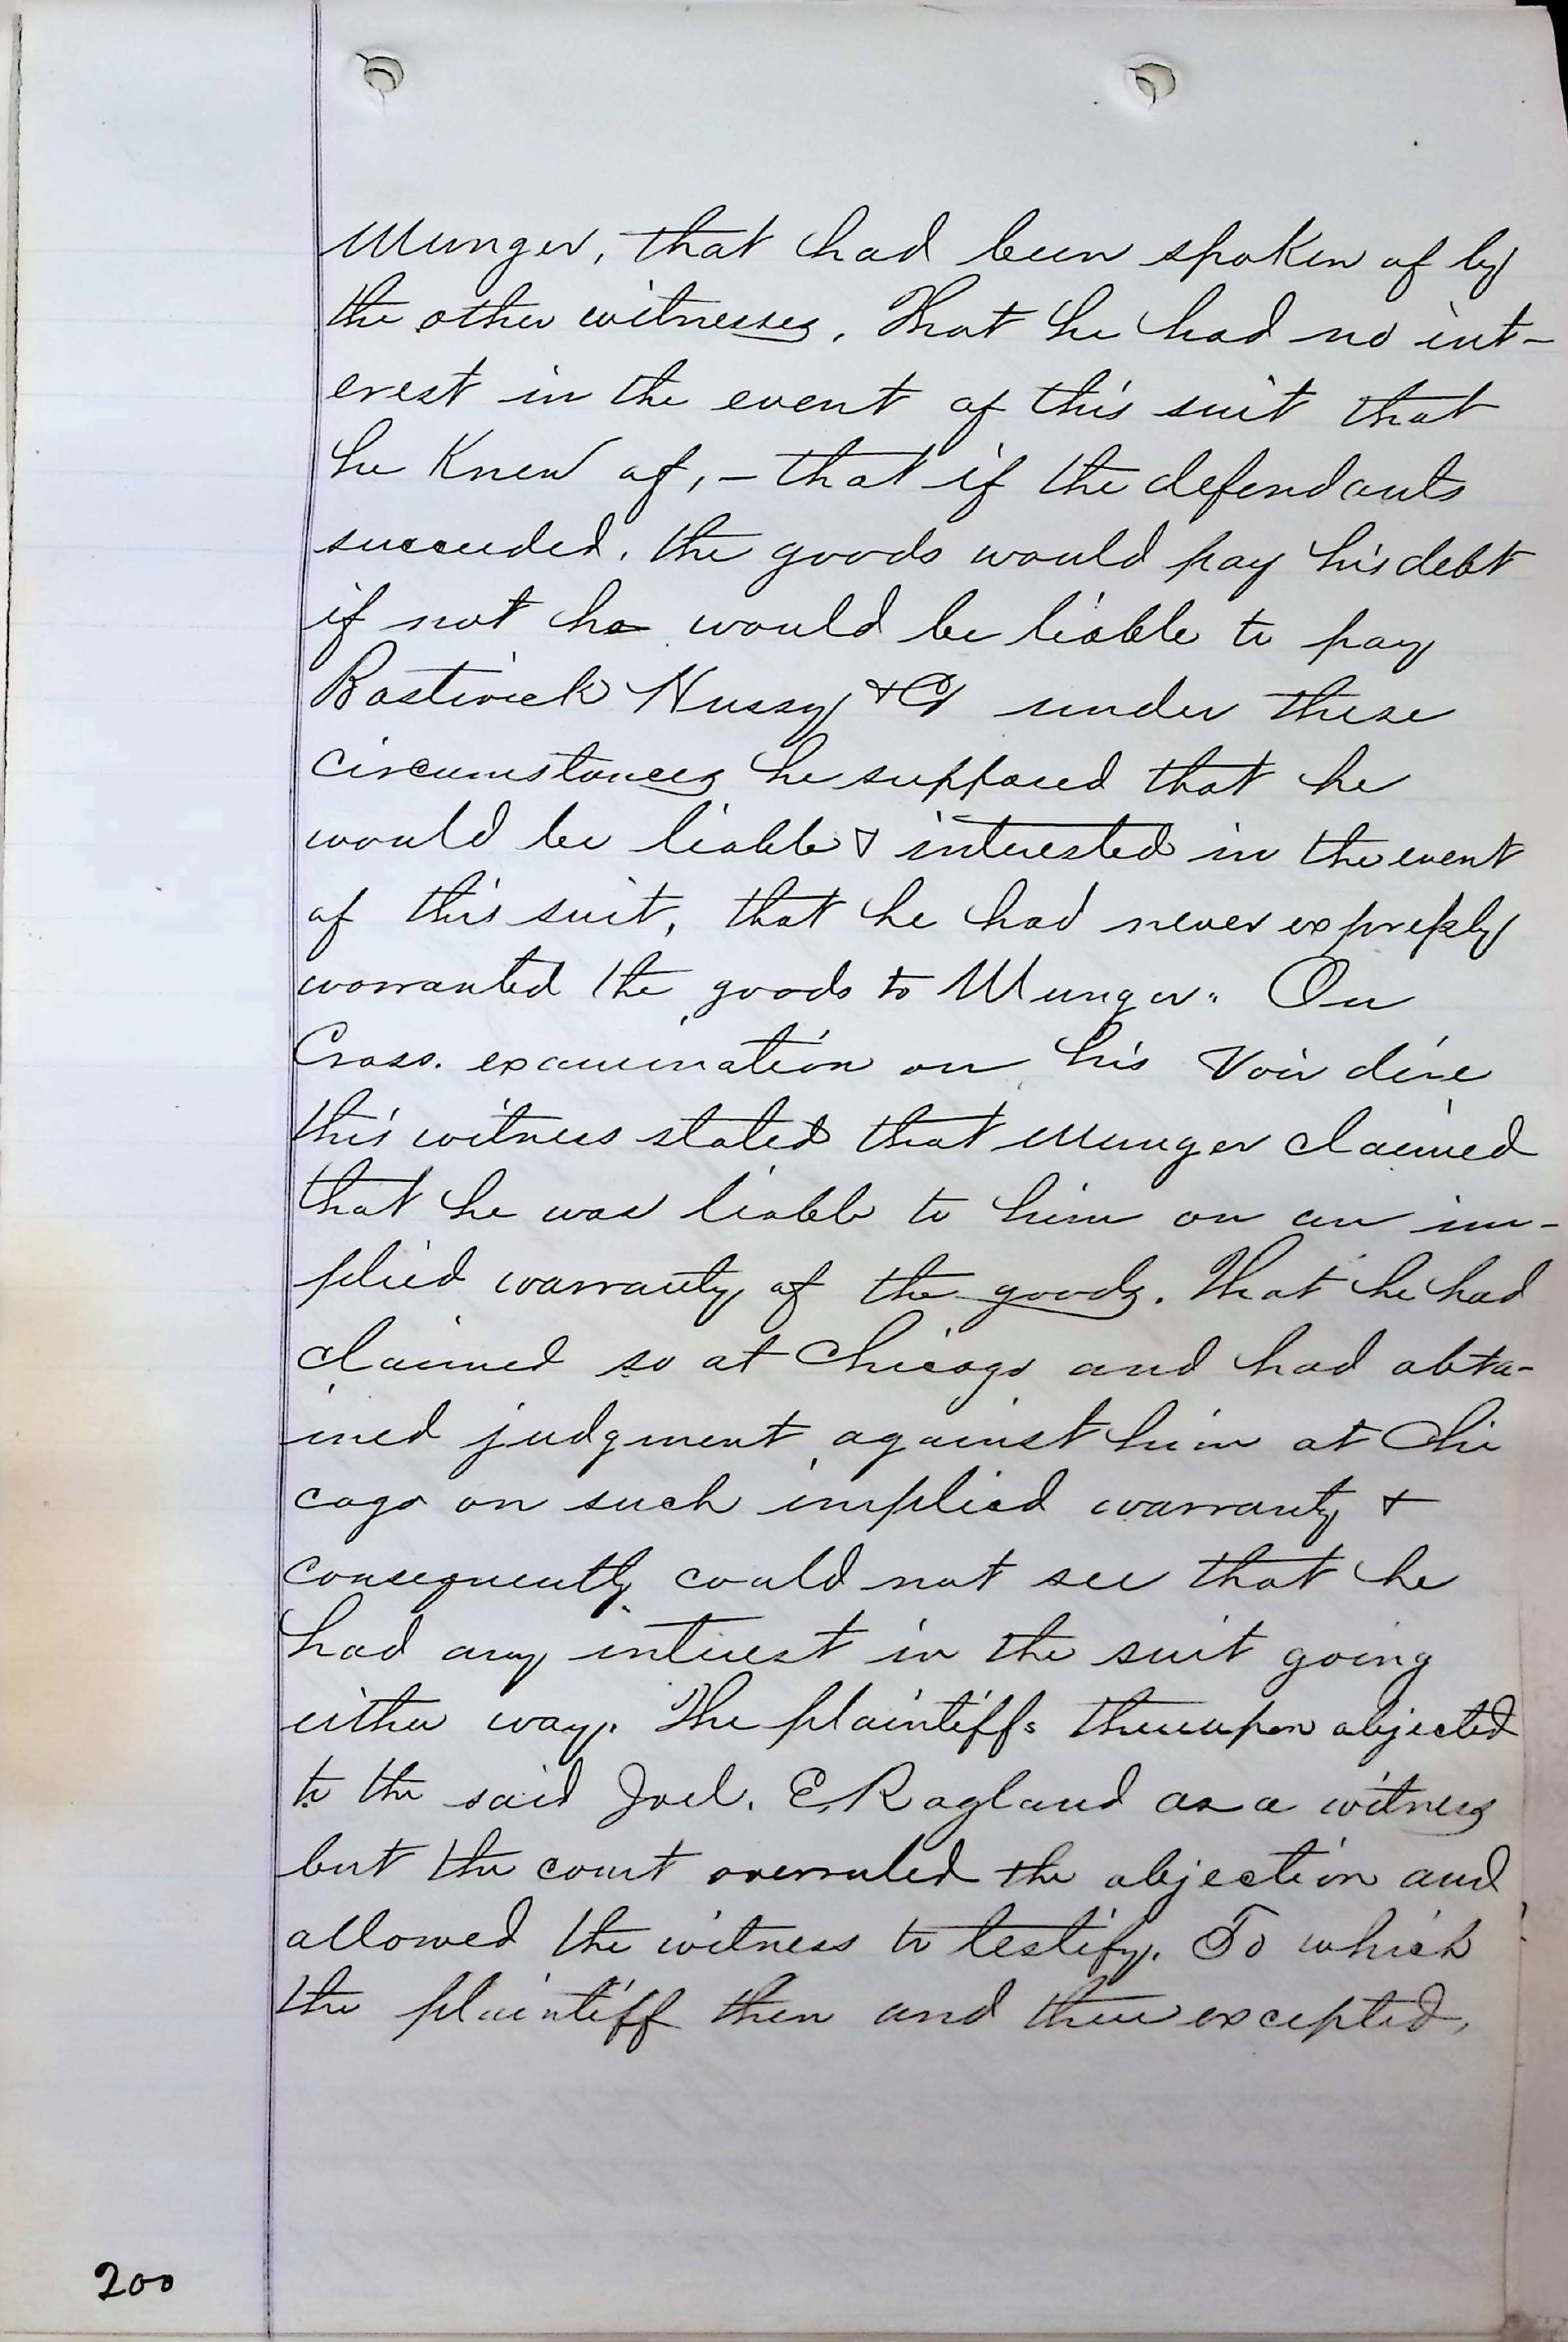 Munger, that had been spoken of by
the other witnesses. That he had no int-
erest in the event of this suit that
he Knew of, - that if the defendants
succeeded. the goods would pay his debt
if not he would be liable to pay
Bostwick Hussy & Co under these
circumstances he supposed that he
would be liable & interested in the event
of this suit, that he had never expressly
warranted the goods to Munger. On
Cross. examination on his Voir dire
this witness stated that Munger claimed
that he was liable to him on an im-
plied warranty of the goods. That he had
claimed so at Chicago and had obta-
ined judgment against him at Chi
cago on such implied warranty &
consequently could not see that he
had any interest in the suit going
either way. The plaintiffs thereupon objected
to the said Joel. E. Ragland as a witness
but the court overruled the objection and
allowed the witness to testify. To which
the plaintiff then and there excepted,
200